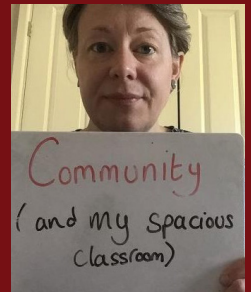 Community
(and my spacious
classroom)